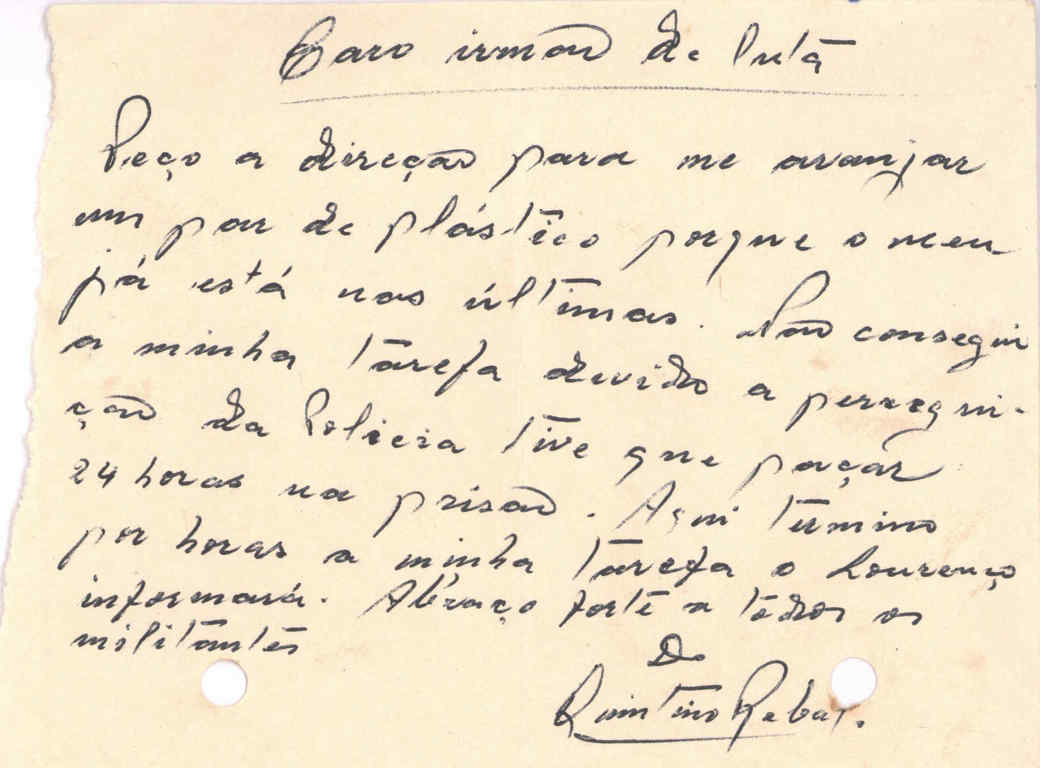 Caro irmão de luta
Peço a direção para me aranjar
um par de plástico porque o meu
já está nas últimas. Não conseguir
a minha tarefa devido a perregui-
ção da Policia tive que paçár
24 horas na prisão. Aqui término
por horas a minha tarefa o Lourenço
informará. Abraço forte a tôdos os
militantes
Do
Quintino